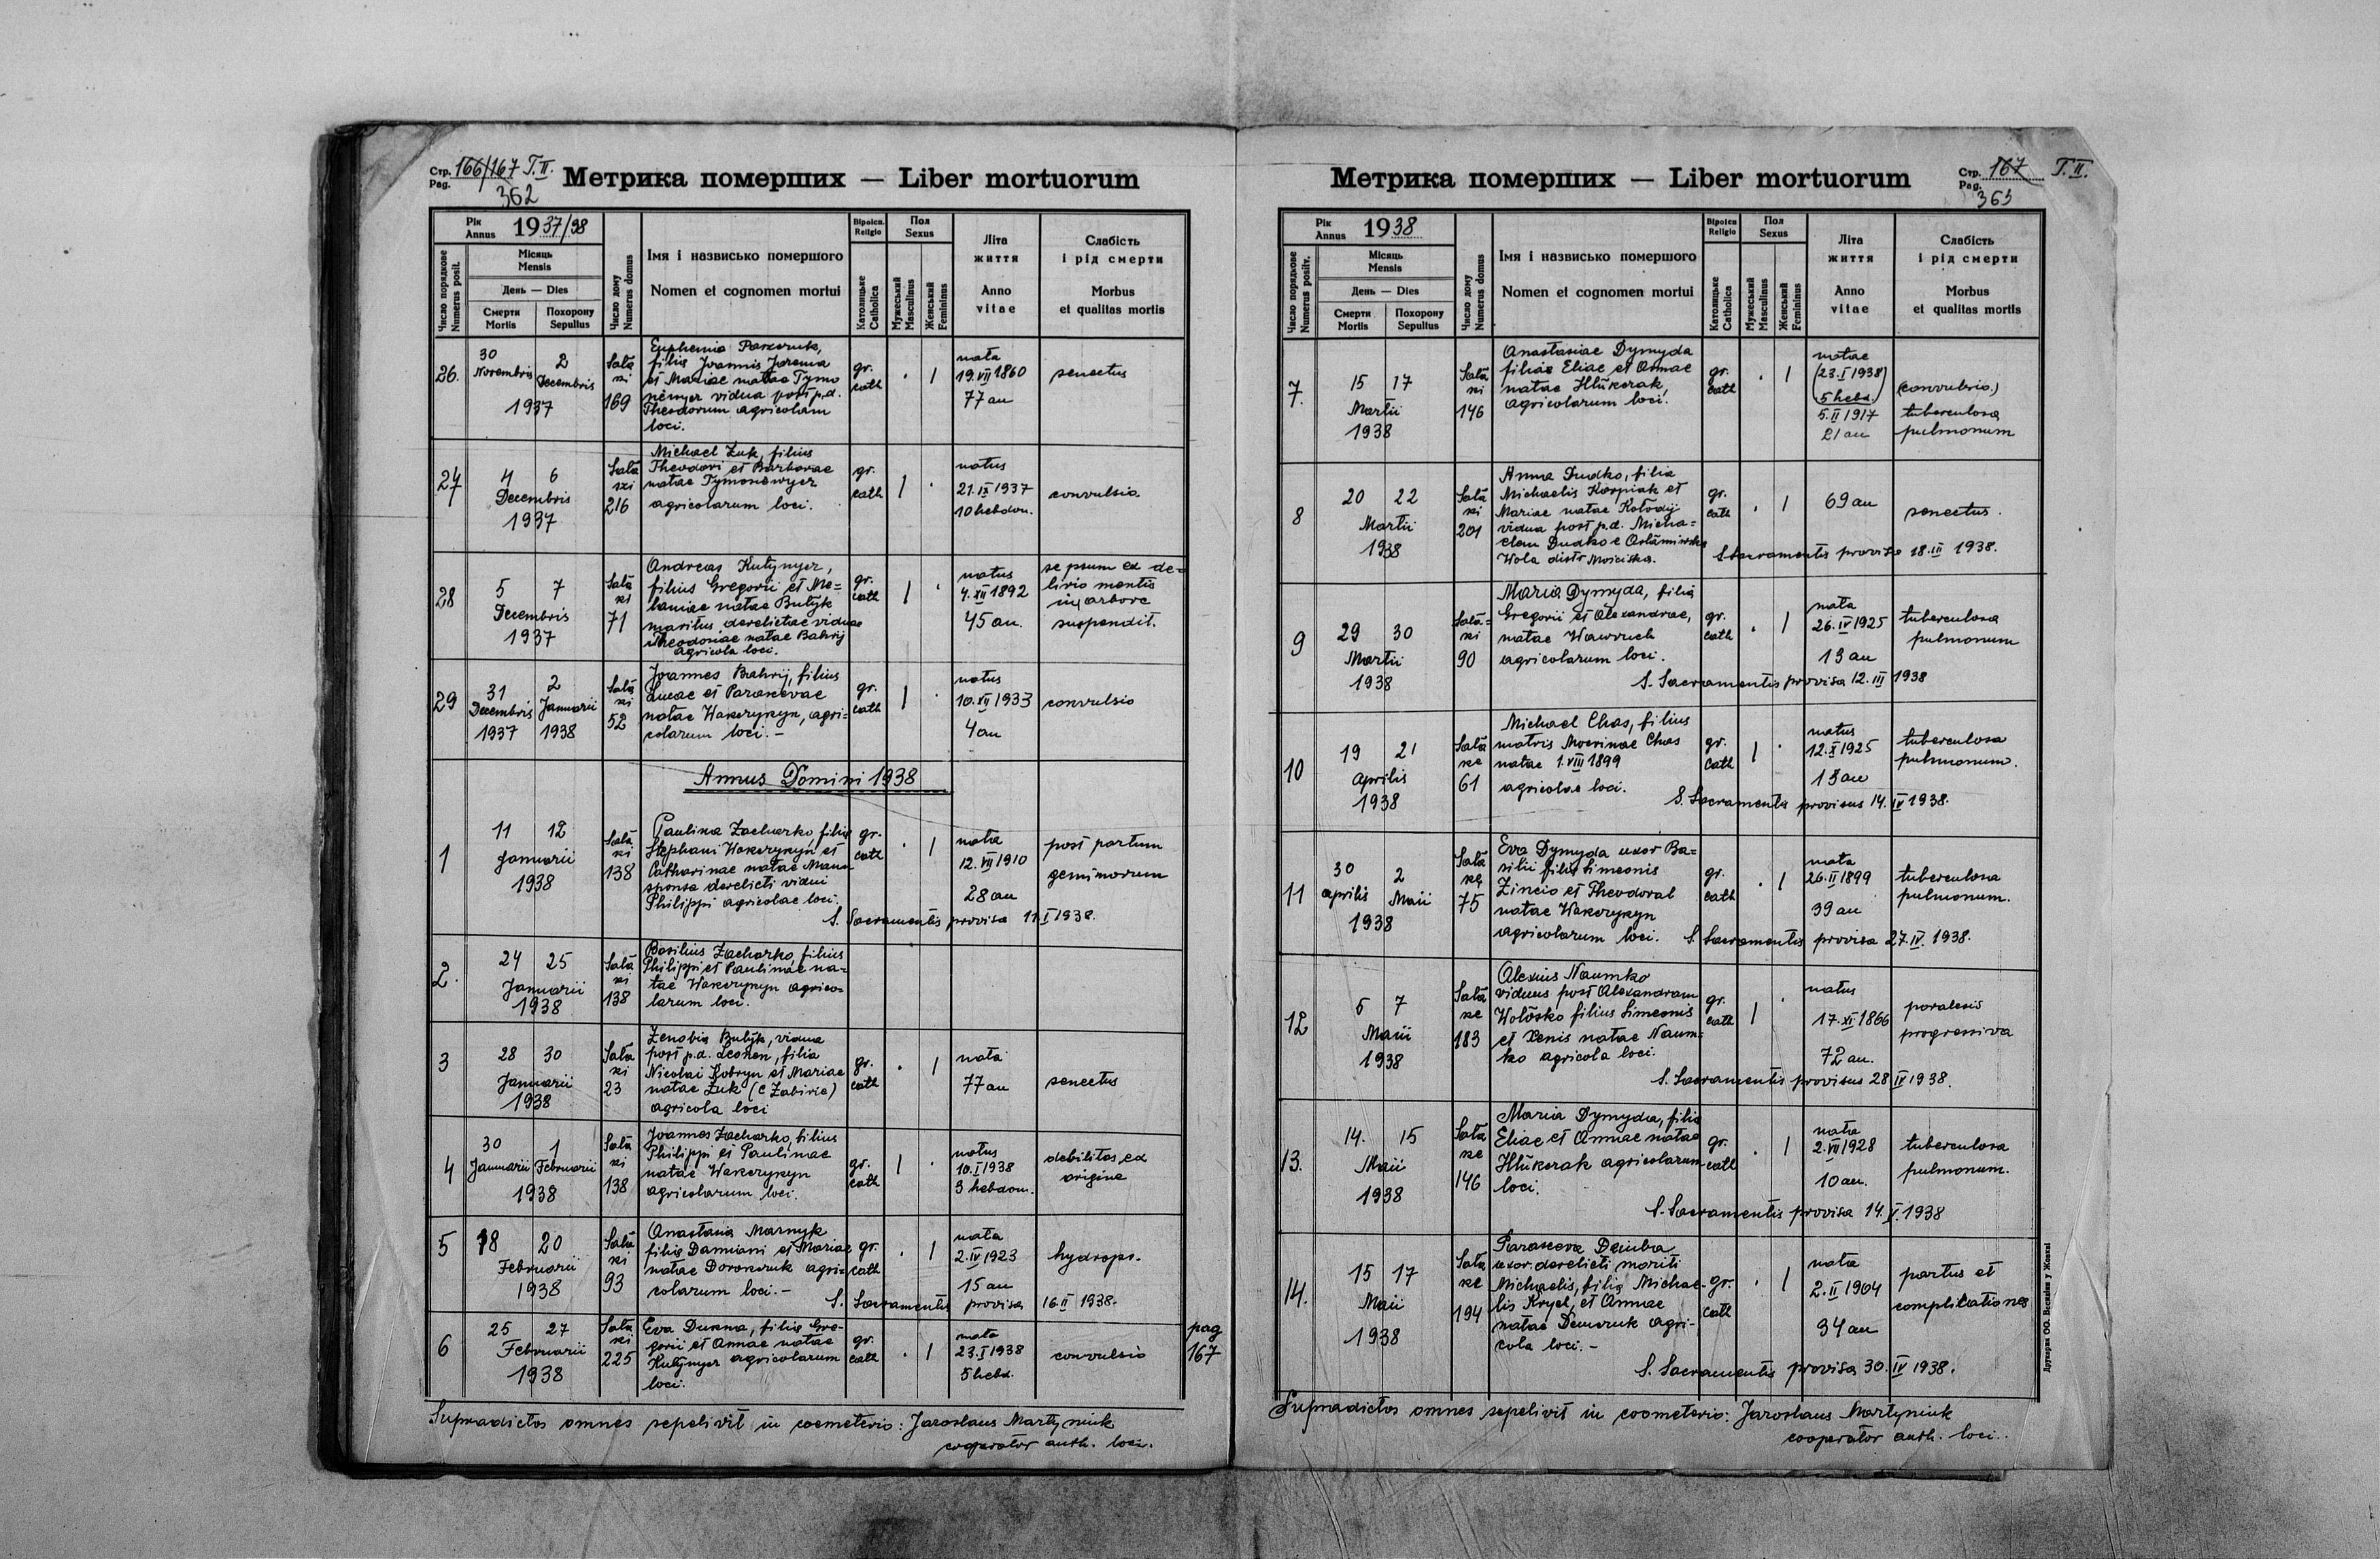 Стр. 166/167 T.II.
Pag. 362
Метрика померших — Liber mortuorum
Рік
Annus 1937/38
Місяць
Mensis
День — Dies
Смерти
Mortis
Похорону
Sepultus
Число порядкове
Numerus posit.
Число дому
Numerus domus
Імя і назвисько помершого
Nomen et cognomen mortui
Віроісп.
Religio
Католицьке
Catholica
Пол
Sexus
Мужеський
Masculinus
Женський
Femininus
Літа
життя
Anno
vitae
Слабість
і рід смерти
Morbus
et qualitas mortis
26. 30 Novembris 2 Decembris 1937
Salaski 169
Euphemia Parczuk,
filia Joannis Jarema
et Mariae natae Tymo
newyer vidua post p.d.
Theodorum agricolam
loci.
gr. cath . 1
nata
19.VII 1860
77 an
senectus
27 4 6
Decembris
1937
Salaski 216
Michael Zuk, filius
Theodori et Barbarae
natae Tymonewyer
agricolarum loci.
gr. cath 1 .
natus
21.IX 1937
10 hebdom.
convulsio
28 5 7
Decembris
1937
Salaski 71
Andreas Kutynyer,
filius Gregorii et Me=
laniae natae Butyk
maritus derelictae viduae
Theodosiae natae Bahrij
agricola loci.
gr. cath 1 .
natus
4.XII 1892
45 an.
se psum ex de=
lirio mentis
in arbore
suspendit.
29 31 Decembris 1937 2 Januarii 1938
Salaski 52
Joannes Bahrij, filius
Lucae et Parascevae
natae Wakerykyn, agri=
colarum loci. –
gr. cath 1 .
natus
10.XII 1933
4 an
convulsio
Annus Domini 1938
1 11 12
Januarii
1938
Salaski 138
Paulina Zacharko filia
Stephani Wakerykyn et
Catharinae natae Maun
sponsa derelicti vidui
Philippi agricolae loci.
gr. cath . 1
nata
12.VII 1910
28 an
post partum
geminorum
S. Sacramentis provisa 11 I 1938.
2. 24 25
Januarii
1938
Salaski 138
Basilius Zacharko, filius
Philippi et Paulinae na=
tae Wakerykyn agrico=
larum loci.
3 28 30
Januarii
1938
Salaski 23
Zenobia Butyk, vidua
post p.d. Leonem, filia
Nicolai Kobryn et Mariae
natae Zuk (e Zabirie)
agricola loci
gr. cath . 1
nata
77 an
senectus
4 30 Januarii 1 Februarii
1938
Salaski 138
Joannes Zacharko, filius
Philippi et Paulinae
natae Wakerykyn
agricolarum loci.
gr. cath 1 .
natus
10.I 1938
3 hebdom.
debilitas ex
origine
5 18 20
Februarii
1938
Salaski 93
Anastasia Marnyk
filia Damiani et Mariae
natae Doroszruk agri=
colarum loci. –
gr. cath . 1
nata
2.IV 1923
15 an
hydrops.
S. Sacramentis provisa 16.II 1938.
6 25 27
Februarii
1938
Salaski 225
Eva Dukma, filia Gre-
gorii et Annae natae
Kutynyer agricolarum
loci.
gr. cath . 1
nata
23.I 1938
5 hebd.
convulsio
pag
167
Supradictos omnes sepelivit in coemeterio: Jaroslaus Martyniuk
cooperator auth. loci.
Метрика померших — Liber mortuorum
Стр. 167 T.II.
Pag. 363
Рік
Annus 1938
Місяць
Mensis
День — Dies
Смерти
Mortis
Похорону
Sepultus
Число порядкове
Numerus positv.
Число дому
Numerus domus
Імя і назвисько помершого
Nomen et cognomen mortui
Віроісп.
Religio
Католицьке
Catholica
Пол
Sexus
Мужеський
Masculinus
Женський
Femininus
Літа
життя
Anno
vitae
Слабість
і рід смерти
Morbus
et qualitas mortis
7. 15 17
Martii
1938
Salaski 146
Anastasiae Dymyda
filiae Eliae et Annae
natae Hlukerak,
agricolarum loci.
gr. cath . 1
natae
(23.I 1938)
5 hebd.)
5.II 1917
21 an
(convulsio.)
tuberculosa
pulmonum
8 20 22
Martii
1938
Salaski 201
Anna Dudko, filia
Michaelis Karpiak et
Mariae natae Kołodij
vidua post p.d. Micha=
elem Dudko e
Wola distr Mościska.
gr. cath . 1
69 an
senectus.
S. Sacramentis provisa 18.III 1938.
9 29 30
Martii
1938
Sala=ski 90
Maria Dymyda, filia
Gregorii et Alexandrae,
natae Wawruch
agricolarum loci.
gr. cath . 1
nata
26.IV 1925
13 an
tuberculosa
pulmonum
S. Sacramentis provisa 12.III 1938
10 19 21
Aprilis
1938
Salaske 61
Michael Chas, filius
matris Macrinae Chas
natae 1.VIII 1899
agricolae loci.
gr. cath 1 .
natus
12.X 1925
13 an
tuberculosa
pulmonum.
S. Sacramentis provisus 14.IV 1938.
11 30 aprilis 2 Maii
1938
Salaske 75
Eva Dymyda uxor Ba=
silii filia Simeonis
Zincio et Theodorae
natae Wakerykyn
agricolarum loci.
gr. cath . 1
nata
26.II 1899
39 an
tuberculosa
pulmonum.
S. Sacramentis provisa 27.IV. 1938.
12 6 7
Maii
1938
Salaske 183
Alexius Naumko
viduus post Alexandram
Wołosko filius Simeonis
et Xenis natae Naum=
ko agricola loci.
gr. cath 1 .
natus
17.XI 1866
72 an.
paralesis
progressiva
S. Sacramentis provisus 28 IV 1938.
13. 14. 15
Maii
1938
Salaske 146
Maria Dymyda, filia
Eliae et Annae natae
Hlukerak agricolarum
loci.
gr. cath . 1
nata
2.VII 1928
10 an.
tuberculosa
pulmonum.
S. Sacramentis provisa 14.V.1938
14. 15 17
Maii
1938
Salaske 194
Parasceva Dziuba
uxor derelicti mariti
Michaelis, filia Michae-
lis Kryel, et Annae
natae Demeruk agri-
cola loci. –
gr. cath . 1
nata
2.II 1904
34 an
partus et
complicationes
S. Sacramentis provisa 30.IV 1938.
Supradictos omnes sepelivit in coemeterio: Jaroslaus Martyniuk
cooperator auth. loci.
Друкарня ОО. Василіян у Жовкві